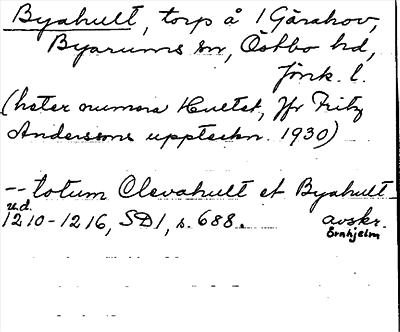 Byahult, torp å 1 Gårahov,
Byarums sn, Östbo hd,
Jönk. l.
(heter numera Hultet, jfr Fritz
Anderssons uppteckn. 1930)
-- totum Olevahult et Byahult -
u.d.
1210-1216, SD1, s. 688. avskr.
Örnhjelm